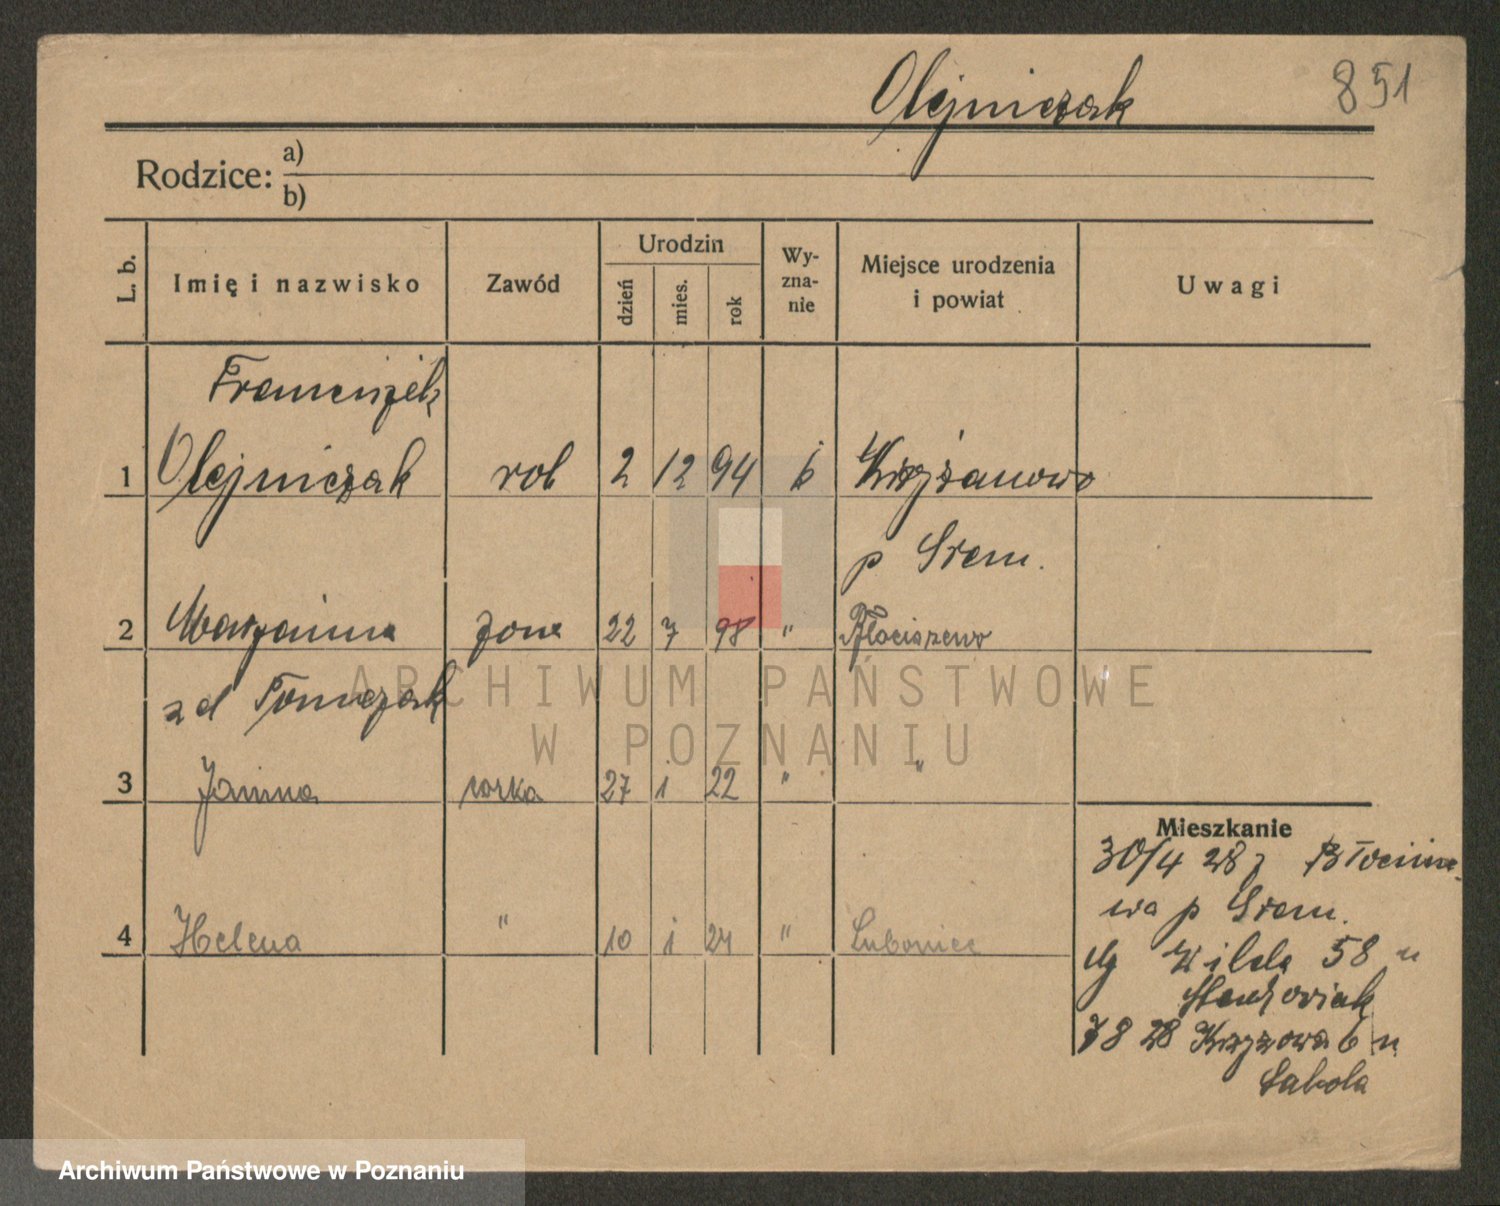 Olejniczak
851
Rodzice: a)
b)
L. b. Imię i nazwisko Zawód Urodzin dzień mies. rok Wyznanie Miejsce urodzenia i powiat Uwagi
Franciszek
1 Olejniczak rob 2 12 94 k Krzyżanowo
p Śrem.
2 Marjanna żona 22 7 98 " Błociszewo
z d Tomczak
3 Janina corka 27 1 22 " "
4 Helena " 10 1 24 " Luboniec
Mieszkanie
30/4 28 z Błocisze-
wa p Śrem.
dg Wilda 58 u
7 8 28 Krzyżowa 6 u
Sabola
ARCHIWUM PAŃSTWOWE
W POZNANIU
Archiwum Państwowe w Poznaniu